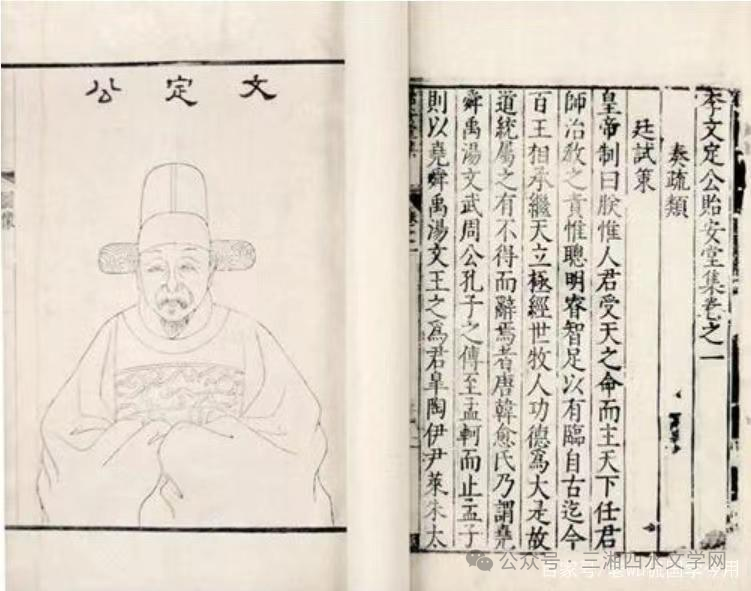 文定公
李文定公貽安堂集卷之一
奏疏類
廷試策
皇帝制曰朕惟人君受天之命而主天下任君
師治教之責惟聰明睿智足以有臨自古迄今
百王相承繼天立極經世牧人功德爲大是故
道統屬之有不得而辭焉者唐韓愈氏乃謂堯
舜禹湯文武周公孔子之傳至孟軻而止孟子
則以堯舜禹湯文王之爲君臯陶伊尹萊朱太
公众号·三湘四水文学网